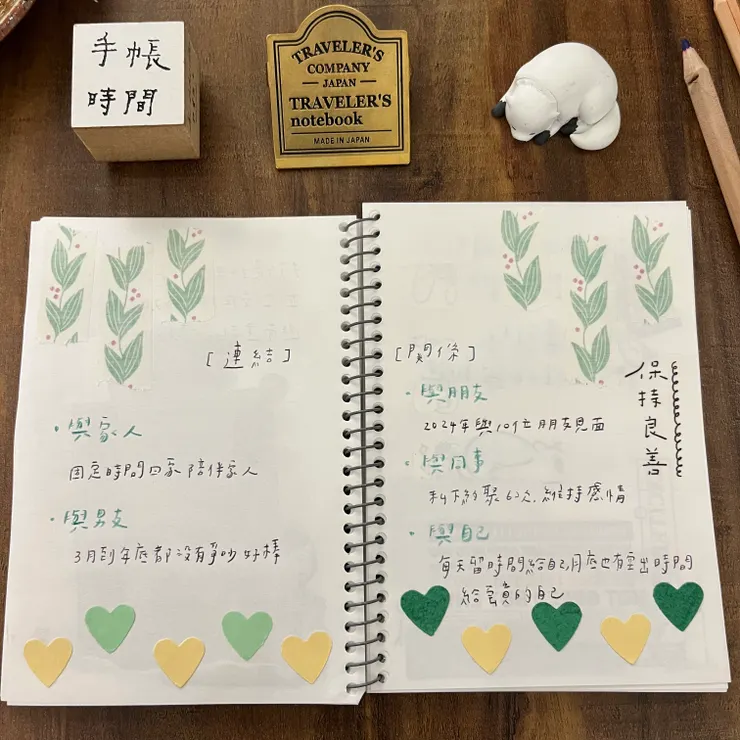 手帳
時間
TRAVELER'S
COMPANY
JAPAN
TRAVELER'S
notebook
MADE IN JAPAN
[連結]
·與家人
固定時間回家陪伴家人
·與男友
3月到年底都沒有爭吵好棒
[關係]
保持良善
·與朋友
2024年與10位朋友見面
·與同事
私下約聚6次,維持感情
·與自己
每天留時間給自己,月底也有空出時間
給寶貴的自己